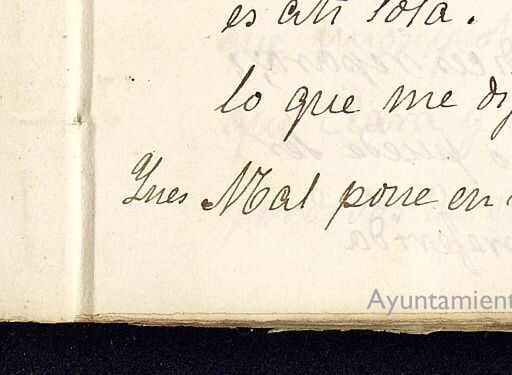 es ati sola.
lo que me di
Ynes Mal pone en
Ayuntamient